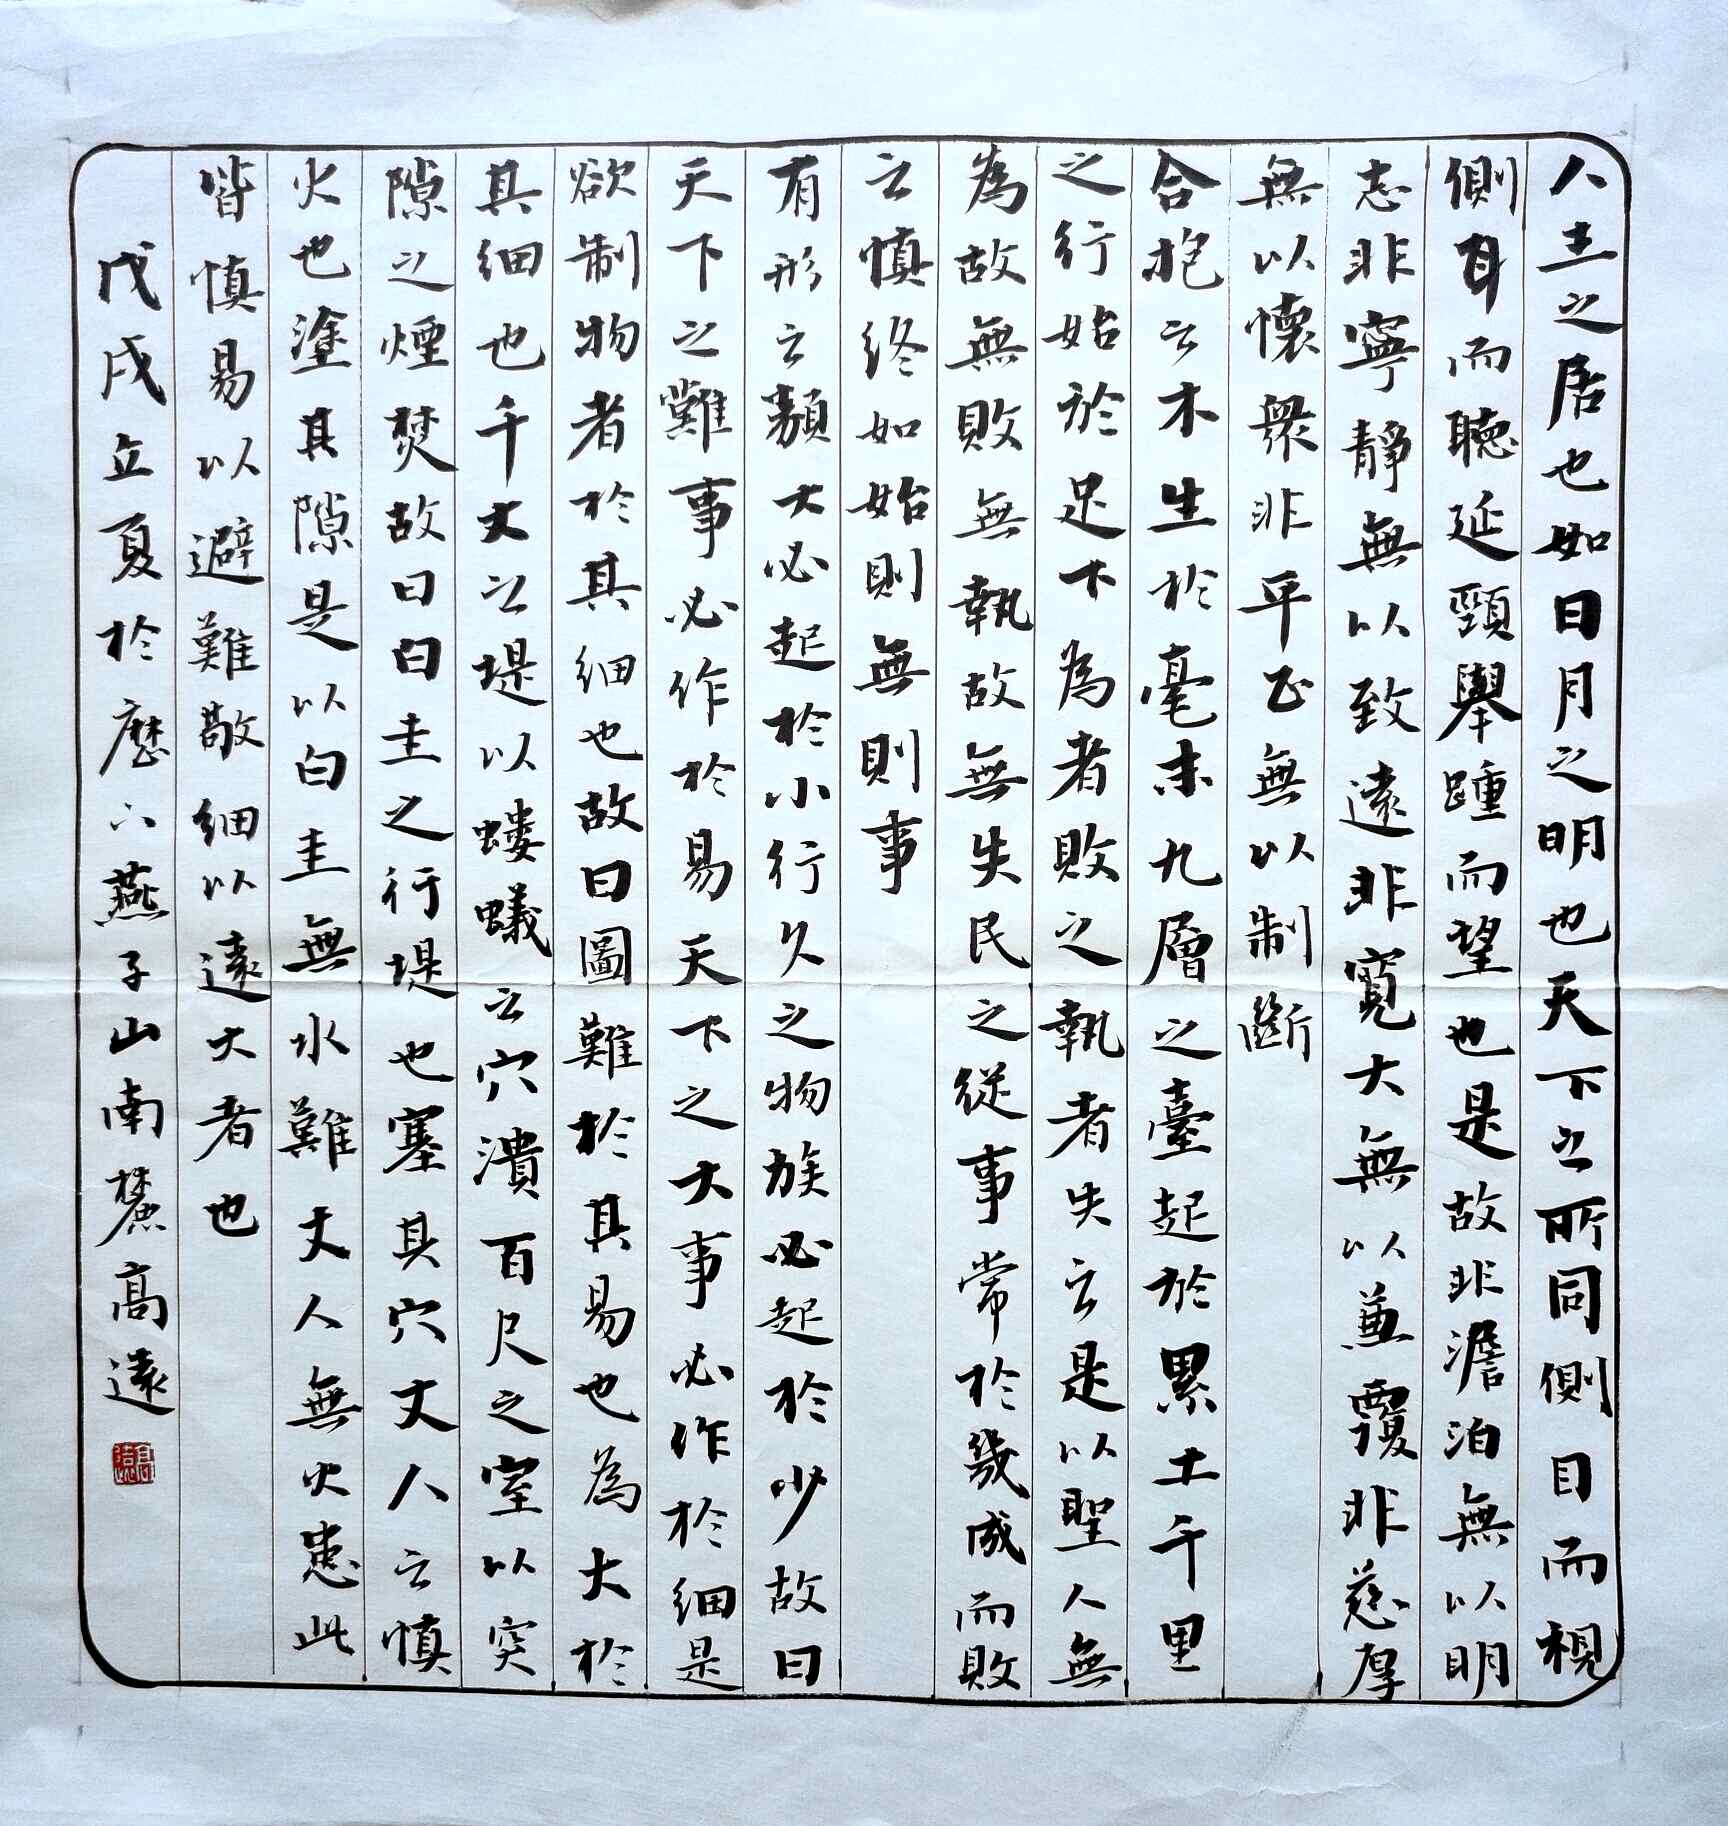 人主之居也如日月之明也天下之所同側目而視
側耳而聽延頸舉踵而望也是故非澹泊無以明
志非寧靜無以致遠非寬大無以兼覆非慈厚
無以懷衆非平正無以制斷
合抱之木生於毫末九層之臺起於累土千里
之行始於足下為者敗之執者失之是以聖人無
為故無敗無執故無失民之從事常於幾成而敗
之慎終如始則無則事
有形之類大必起於小行久之物族必起於少故曰
天下之難事必作於易天下之大事必作於細是
欲制物者於其細也故曰圖難於其易也為大於
其細也千丈之堤以螻蟻之穴潰百尺之室以突
隙之煙焚故曰白圭之行堤也塞其穴丈人之慎
火也塗其隙是以白圭無水難丈人無火患此
皆慎易以避難敬細以遠大者也
戊戌立夏於歷下燕子山南麓高遠
高遠